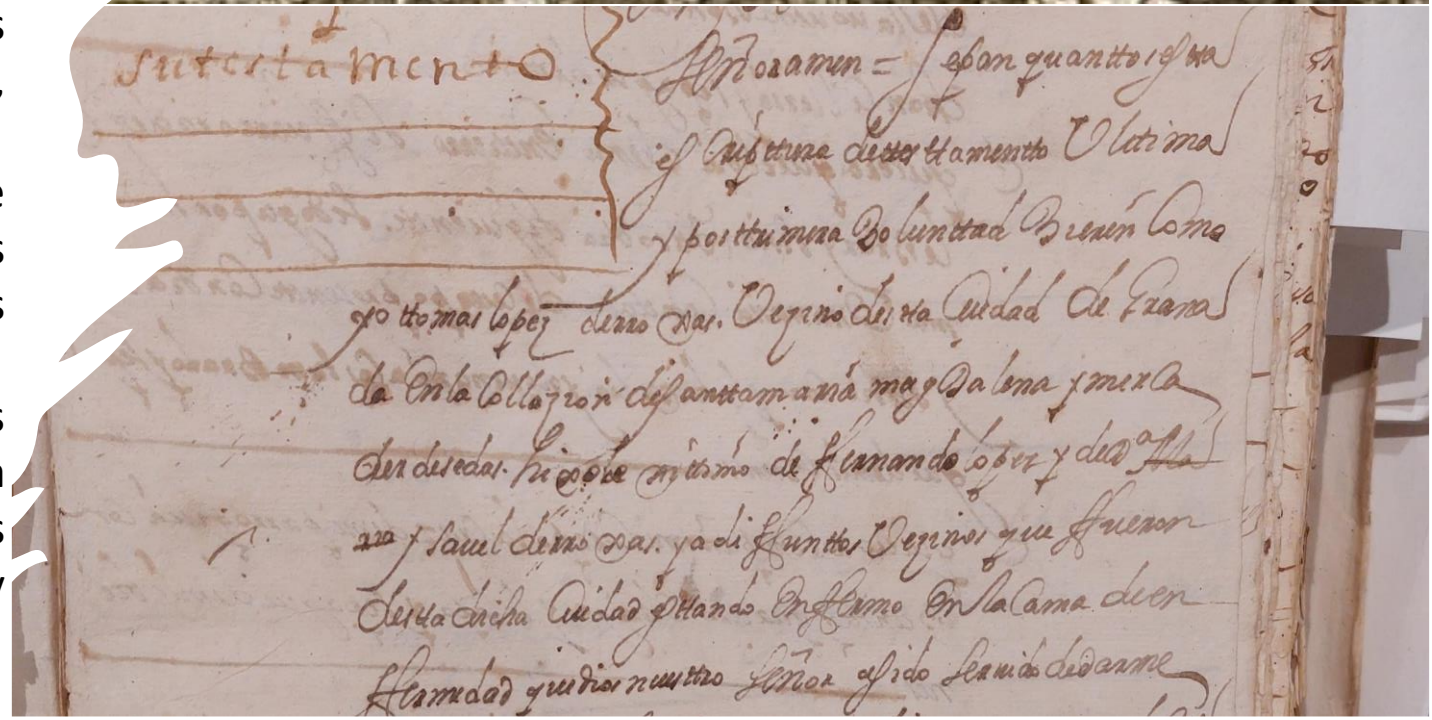 su testamento
señor amen = Sepan quanttos estta
escripttura de testtamentto Ultima
y posttrimera Bolunttad Bieren Como
yo ttomas lopez de rroxas. Vezino destta Ciudad de Grana
da En la Collazion de santta maria magdalena y merca
der de sedas. hixo lexitimo de ffernando lopez y de Da
ysavel de rroxas. ya di ffunttos Vezinos que ffueron
destta dicha Ciudad esttando En ffermo En la Cama de en
ffermedad que dios nuesttro señor a sido servido de darme